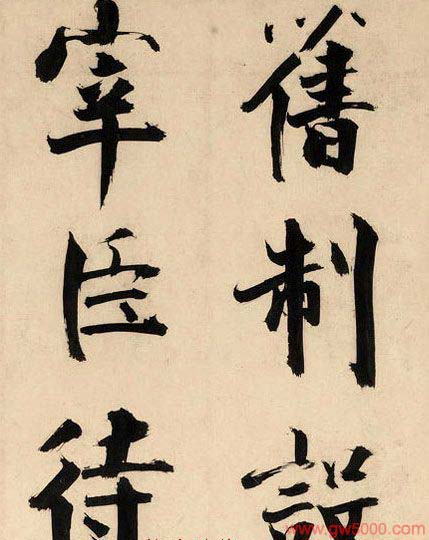 舊制設
宰臣待
www.gw5000.com